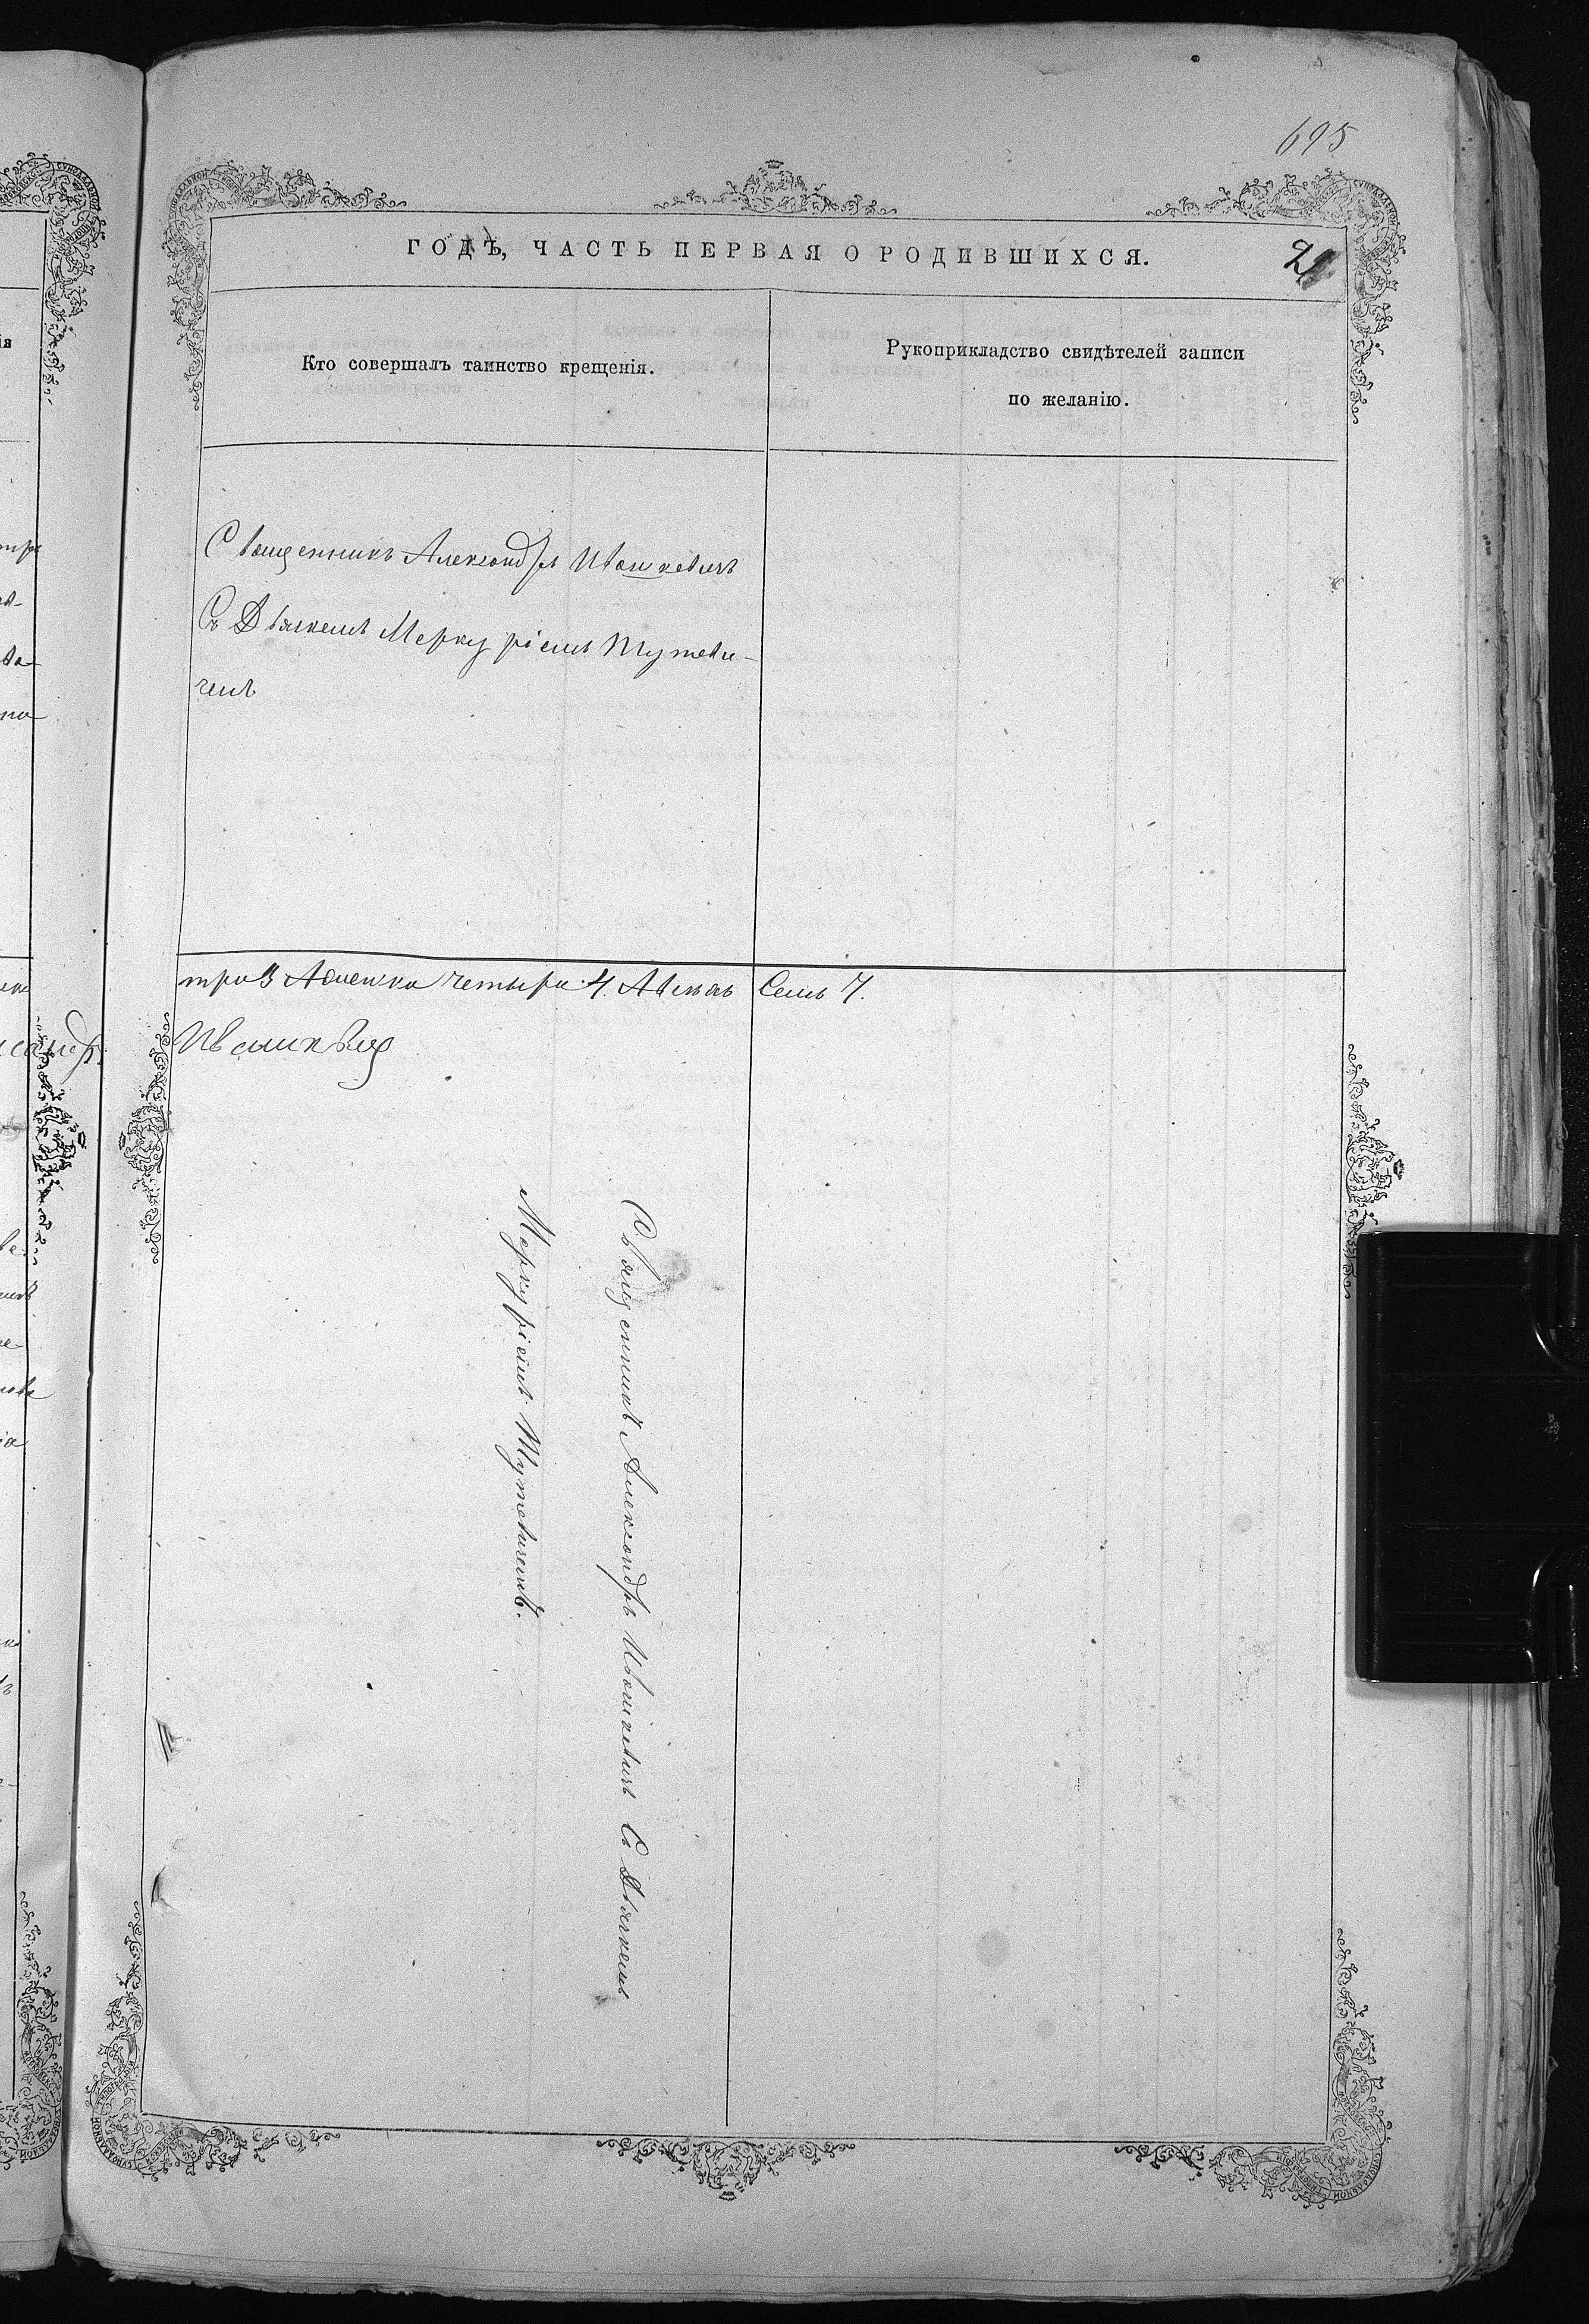 695
ГОДЪ, ЧАСТЬ ПЕРВАЯ О РОДИВШИХСЯ.
Кто совершалъ таинство крещенія.
Рукоприкладство свидѣтелей записи
по желанію.
Священникъ Александръ Ивашкевичъ
Съ Дьячкемъ Меркуріемъ Тутеви-
чемъ
три 3 Женска четыри 4. Авсѣхъ Семь 7.
Священникъ Александръ Ивашкевичъ Съ Дьячкемъ
Меркуріемъ Тутевичемъ.